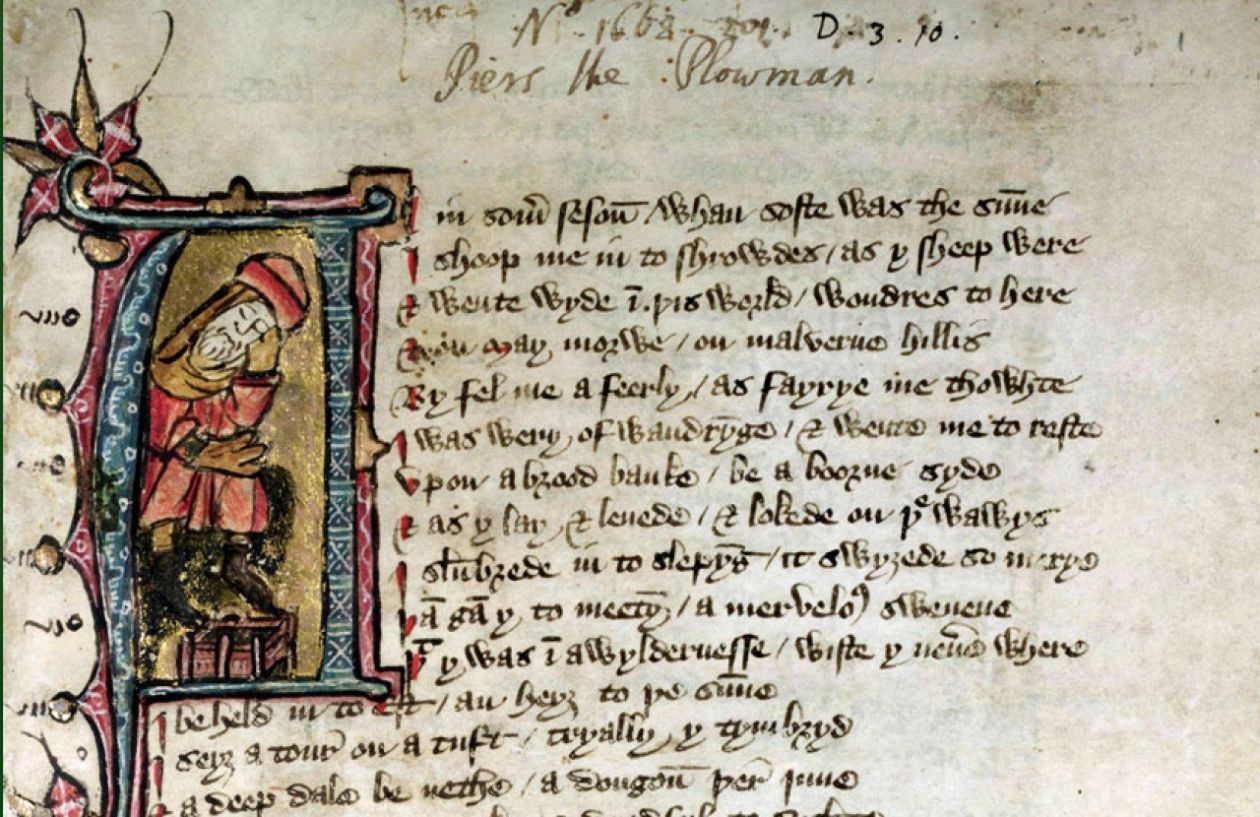 D. 3. 10.
Piers the Plowman.
in som̄ sesoū / whan softe was the sūne
I shoop me in to shrowdes / as y sheep were
& wente wyde ī þis world / wondres to here
may morwe / on malverne hillis
By fel me a feerly / as fayrye me thowhte
I was wery of wandryḡe / & wente me to reste
Vpon a brood banke / be a boorne syde
& as y lay & lenede / & lokede on þͤ wawys
I slūbrede in to slepyḡ / it swyȝede so merye
þā gā y to meetȳ / a merveloꝰ swevene
þͭ y was ī a wyldernesse / wiste y neū where
I be held in to est / an heyȝ to þe sūne
I seyȝ a tour on a tuft / tryally y tymbryd
& a deep dale be nethe / a dongoū þer Inne